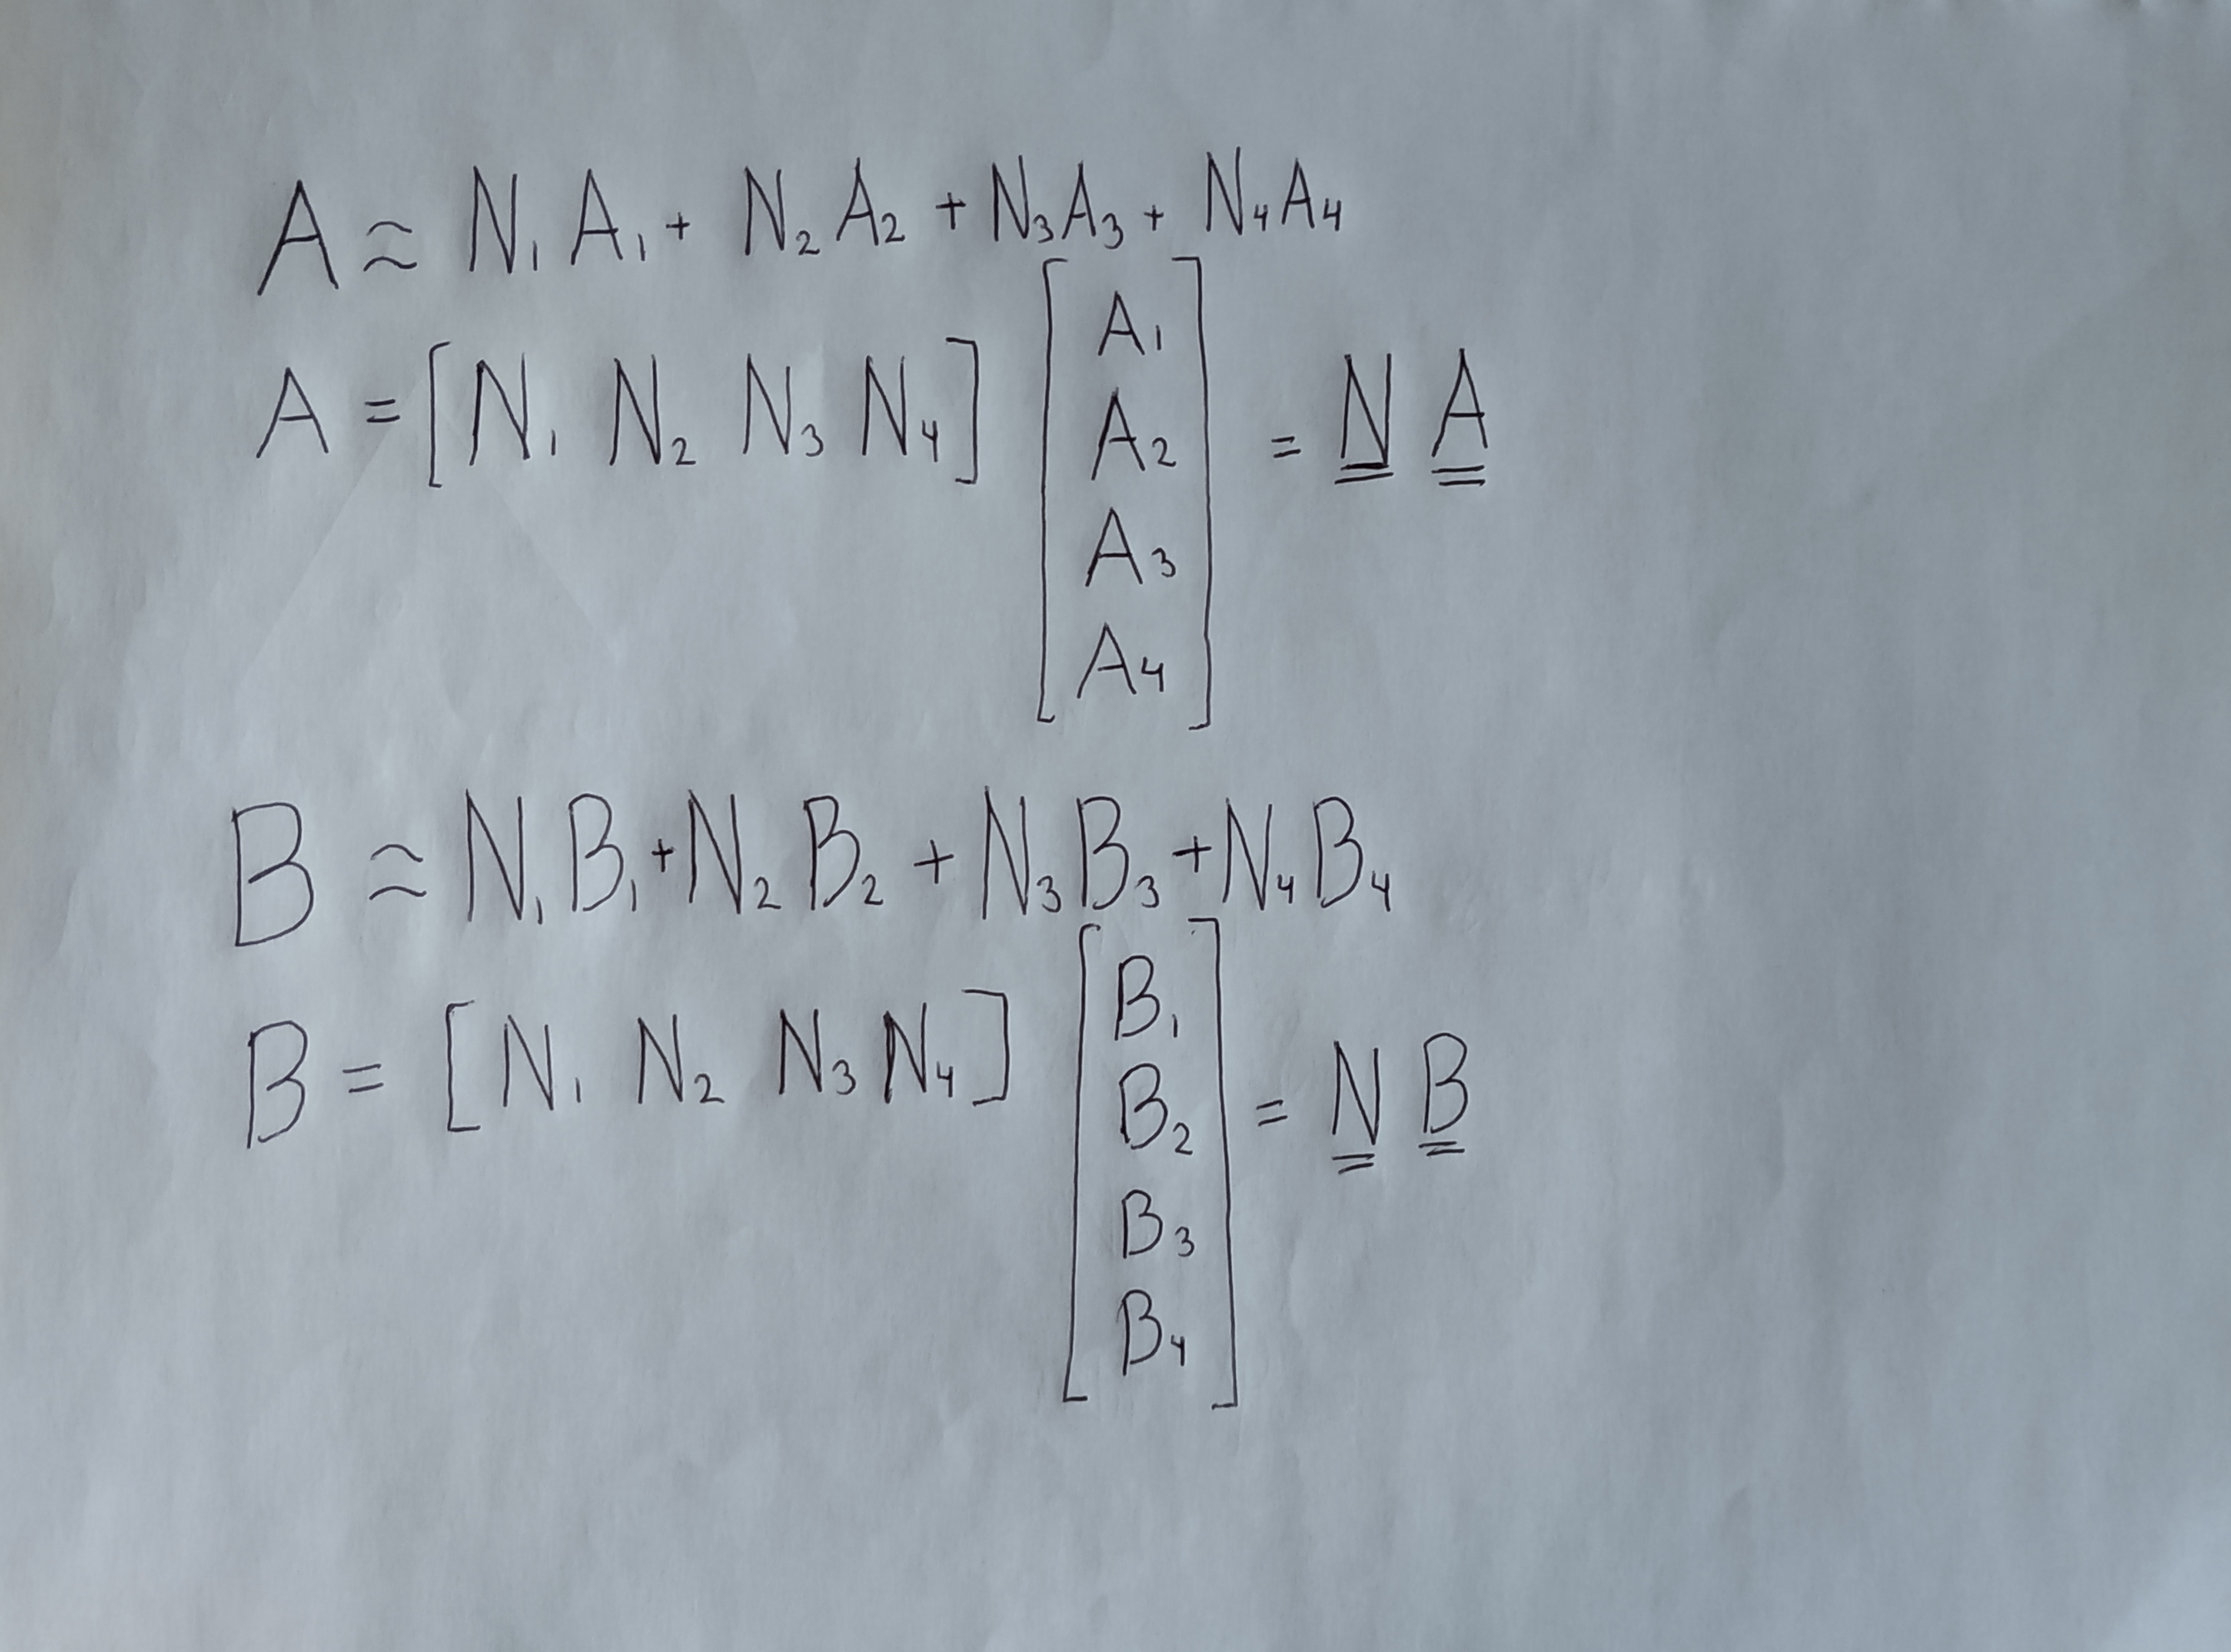 A ≈ N₁A₁ + N₂A₂ + N₃A₃ + N₄A₄
A = [N₁ N₂ N₃ N₄] [A₁ A₂ A₃ A₄] = N̳ A̳
B ≈ N₁B₁ + N₂B₂ + N₃B₃ + N₄B₄
B = [N₁ N₂ N₃ N₄] [B₁ B₂ B₃ B₄] = N̳ B̳